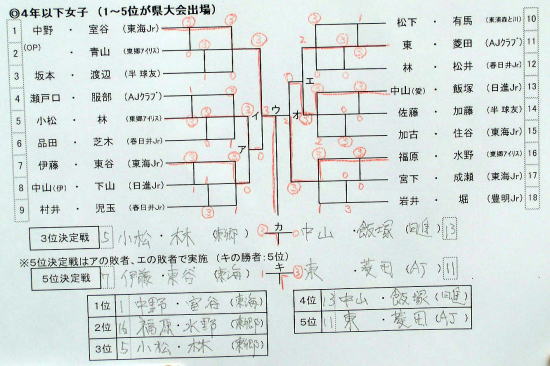 ◎4年以下女子 (1～5位が県大会出場)
1 中野・室谷 (東海Jr)
2 (OP) 青山 (東郷アイリス)
3 坂本・渡辺 (半球友)
4 瀬戸口・服部 (AJクラブ)
5 小松・林 (東郷アイリス)
6 品田・芝木 (春日井Jr)
7 伊藤・東谷 (東海Jr)
8 中山(伊)・下山 (日進Jr)
9 村井・児玉 (春日井Jr)
松下・有馬 10
東・菱田 (AJクラブ) 11
林・松井 (春日井Jr) 12
中山(愛)・飯塚 (日進Jr) 13
佐藤・加藤 (半球友) 14
加古・住谷 (東海Jr) 15
福原・水野 (東郷アイリス) 16
宮下・成瀬 (東海Jr) 17
岩井・堀 (豊明Jr) 18
ア
イ
ウ
エ
オ
3位決定戦 5 小松・林 (東郷) 3 カ 0 中山・飯塚 (日進) 13
※5位決定戦はアの敗者、エの敗者で実施 (キの勝者:5位)
5位決定戦 7 伊藤・東谷 (東海) 1 キ 3 東・菱田 (AJ) 11
1位 1 中野・室谷 (東海)
2位 16 福原・水野 (東郷)
3位 5 小松・林 (東郷)
4位 13 中山・飯塚 (日進)
5位 11 東・菱田 (AJ)